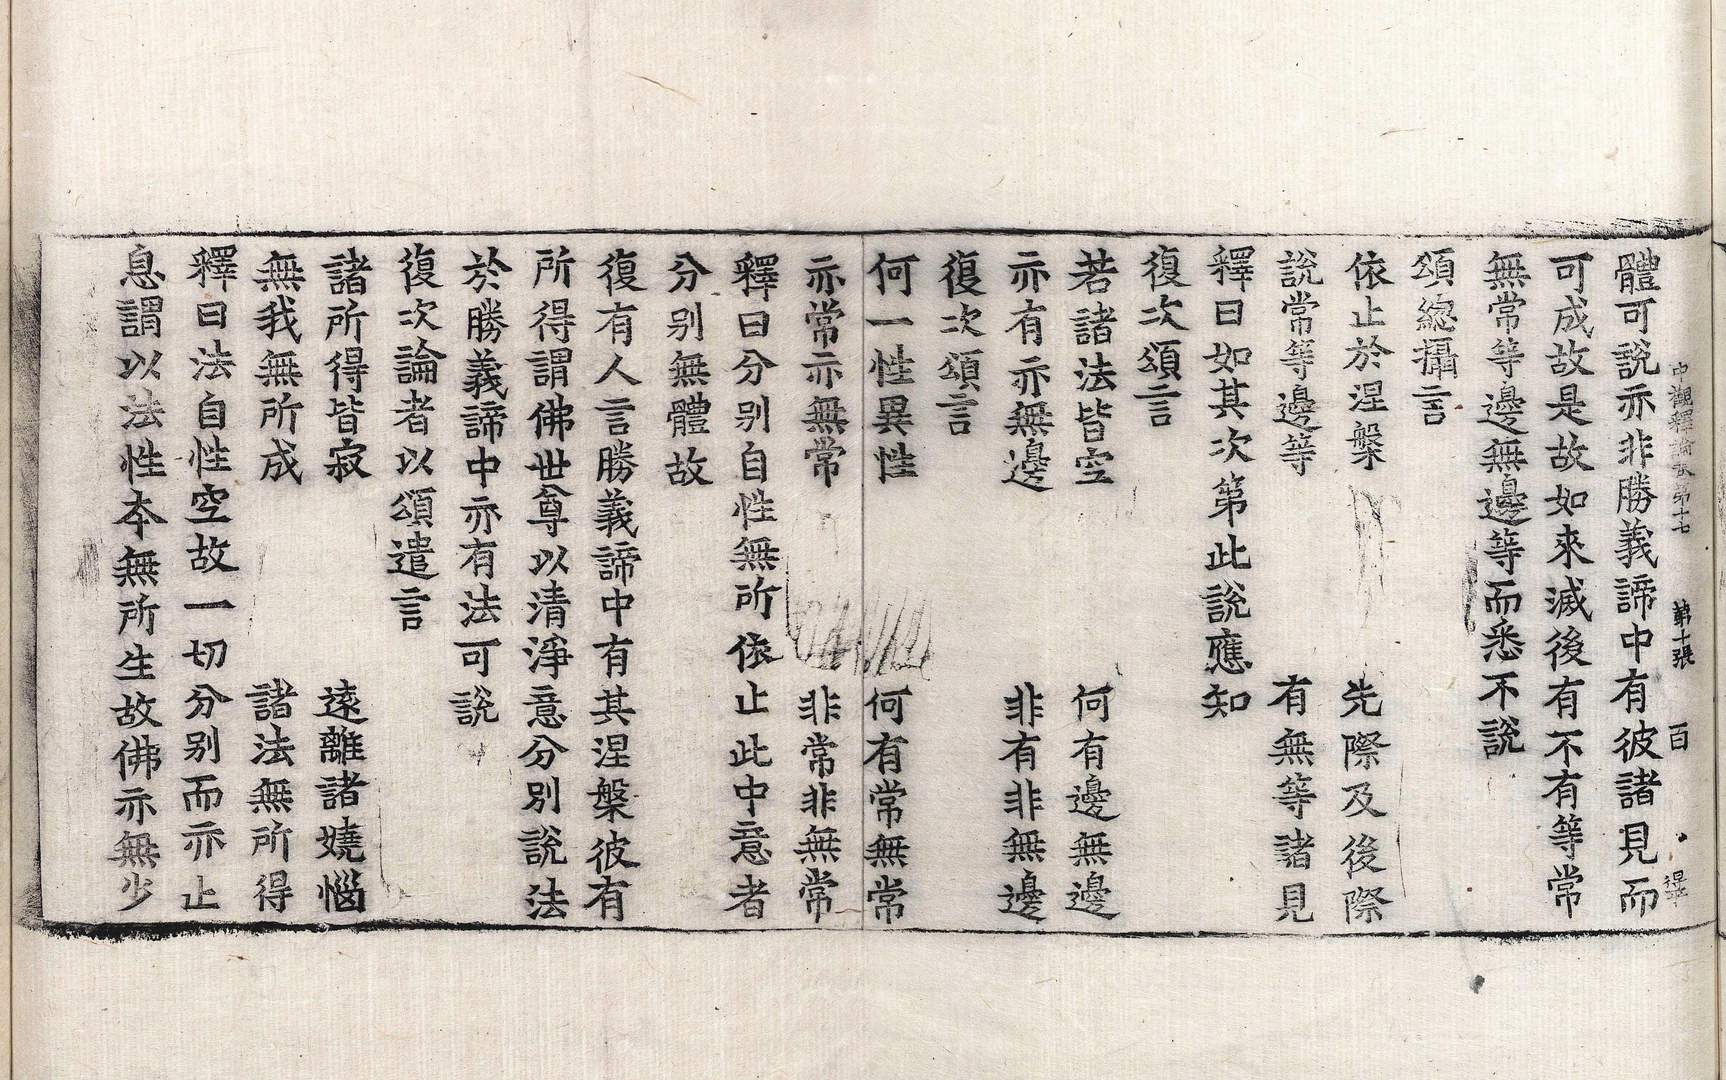 中觀釋論 第十七 第十張 百
體可說亦非勝義諦中有彼諸見而
可成故是故如來滅後有不有等常
無常等邊無邊等而悉不說
頌總攝言
依止於涅槃 先際及後際
說常等邊等 有無等諸見
釋曰如其次第此說應知
復次頌言
若諸法皆空 何有邊無邊
亦有亦無邊 非有非無邊
復次頌言
何一性異性 何有常無常
亦常亦無常 非常非無常
釋曰分別自性無所依止此中意者
分別無體故
復有人言勝義諦中有其涅槃彼有
所得謂佛世尊以清淨意分別說法
於勝義諦中亦有法可說
復次論者以頌遣言
諸所得皆寂 遠離諸嬈惱
無我無所成 諸法無所得
釋曰法自性空故一切分別而亦止
息謂以法性本無所生故佛亦無少